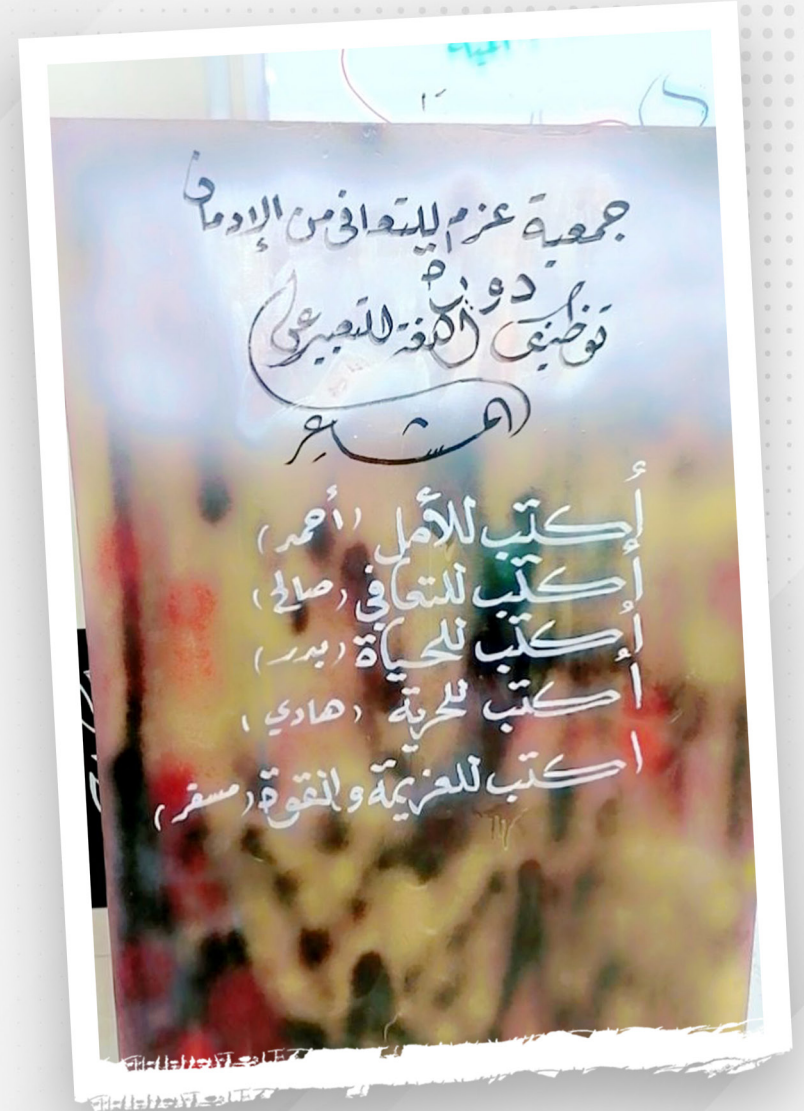 جمعية عزم للتعافي من الإدمان
دورة
توظيف اللغة للتعبير عن
المشاعر
أُكتب للأمل (أحمد)
أُكتب للتعافي (صالح)
أُكتب للحياة (بدر)
أُكتب للحرية (هادي)
اكتب للعزيمة والقوة (مسفر)